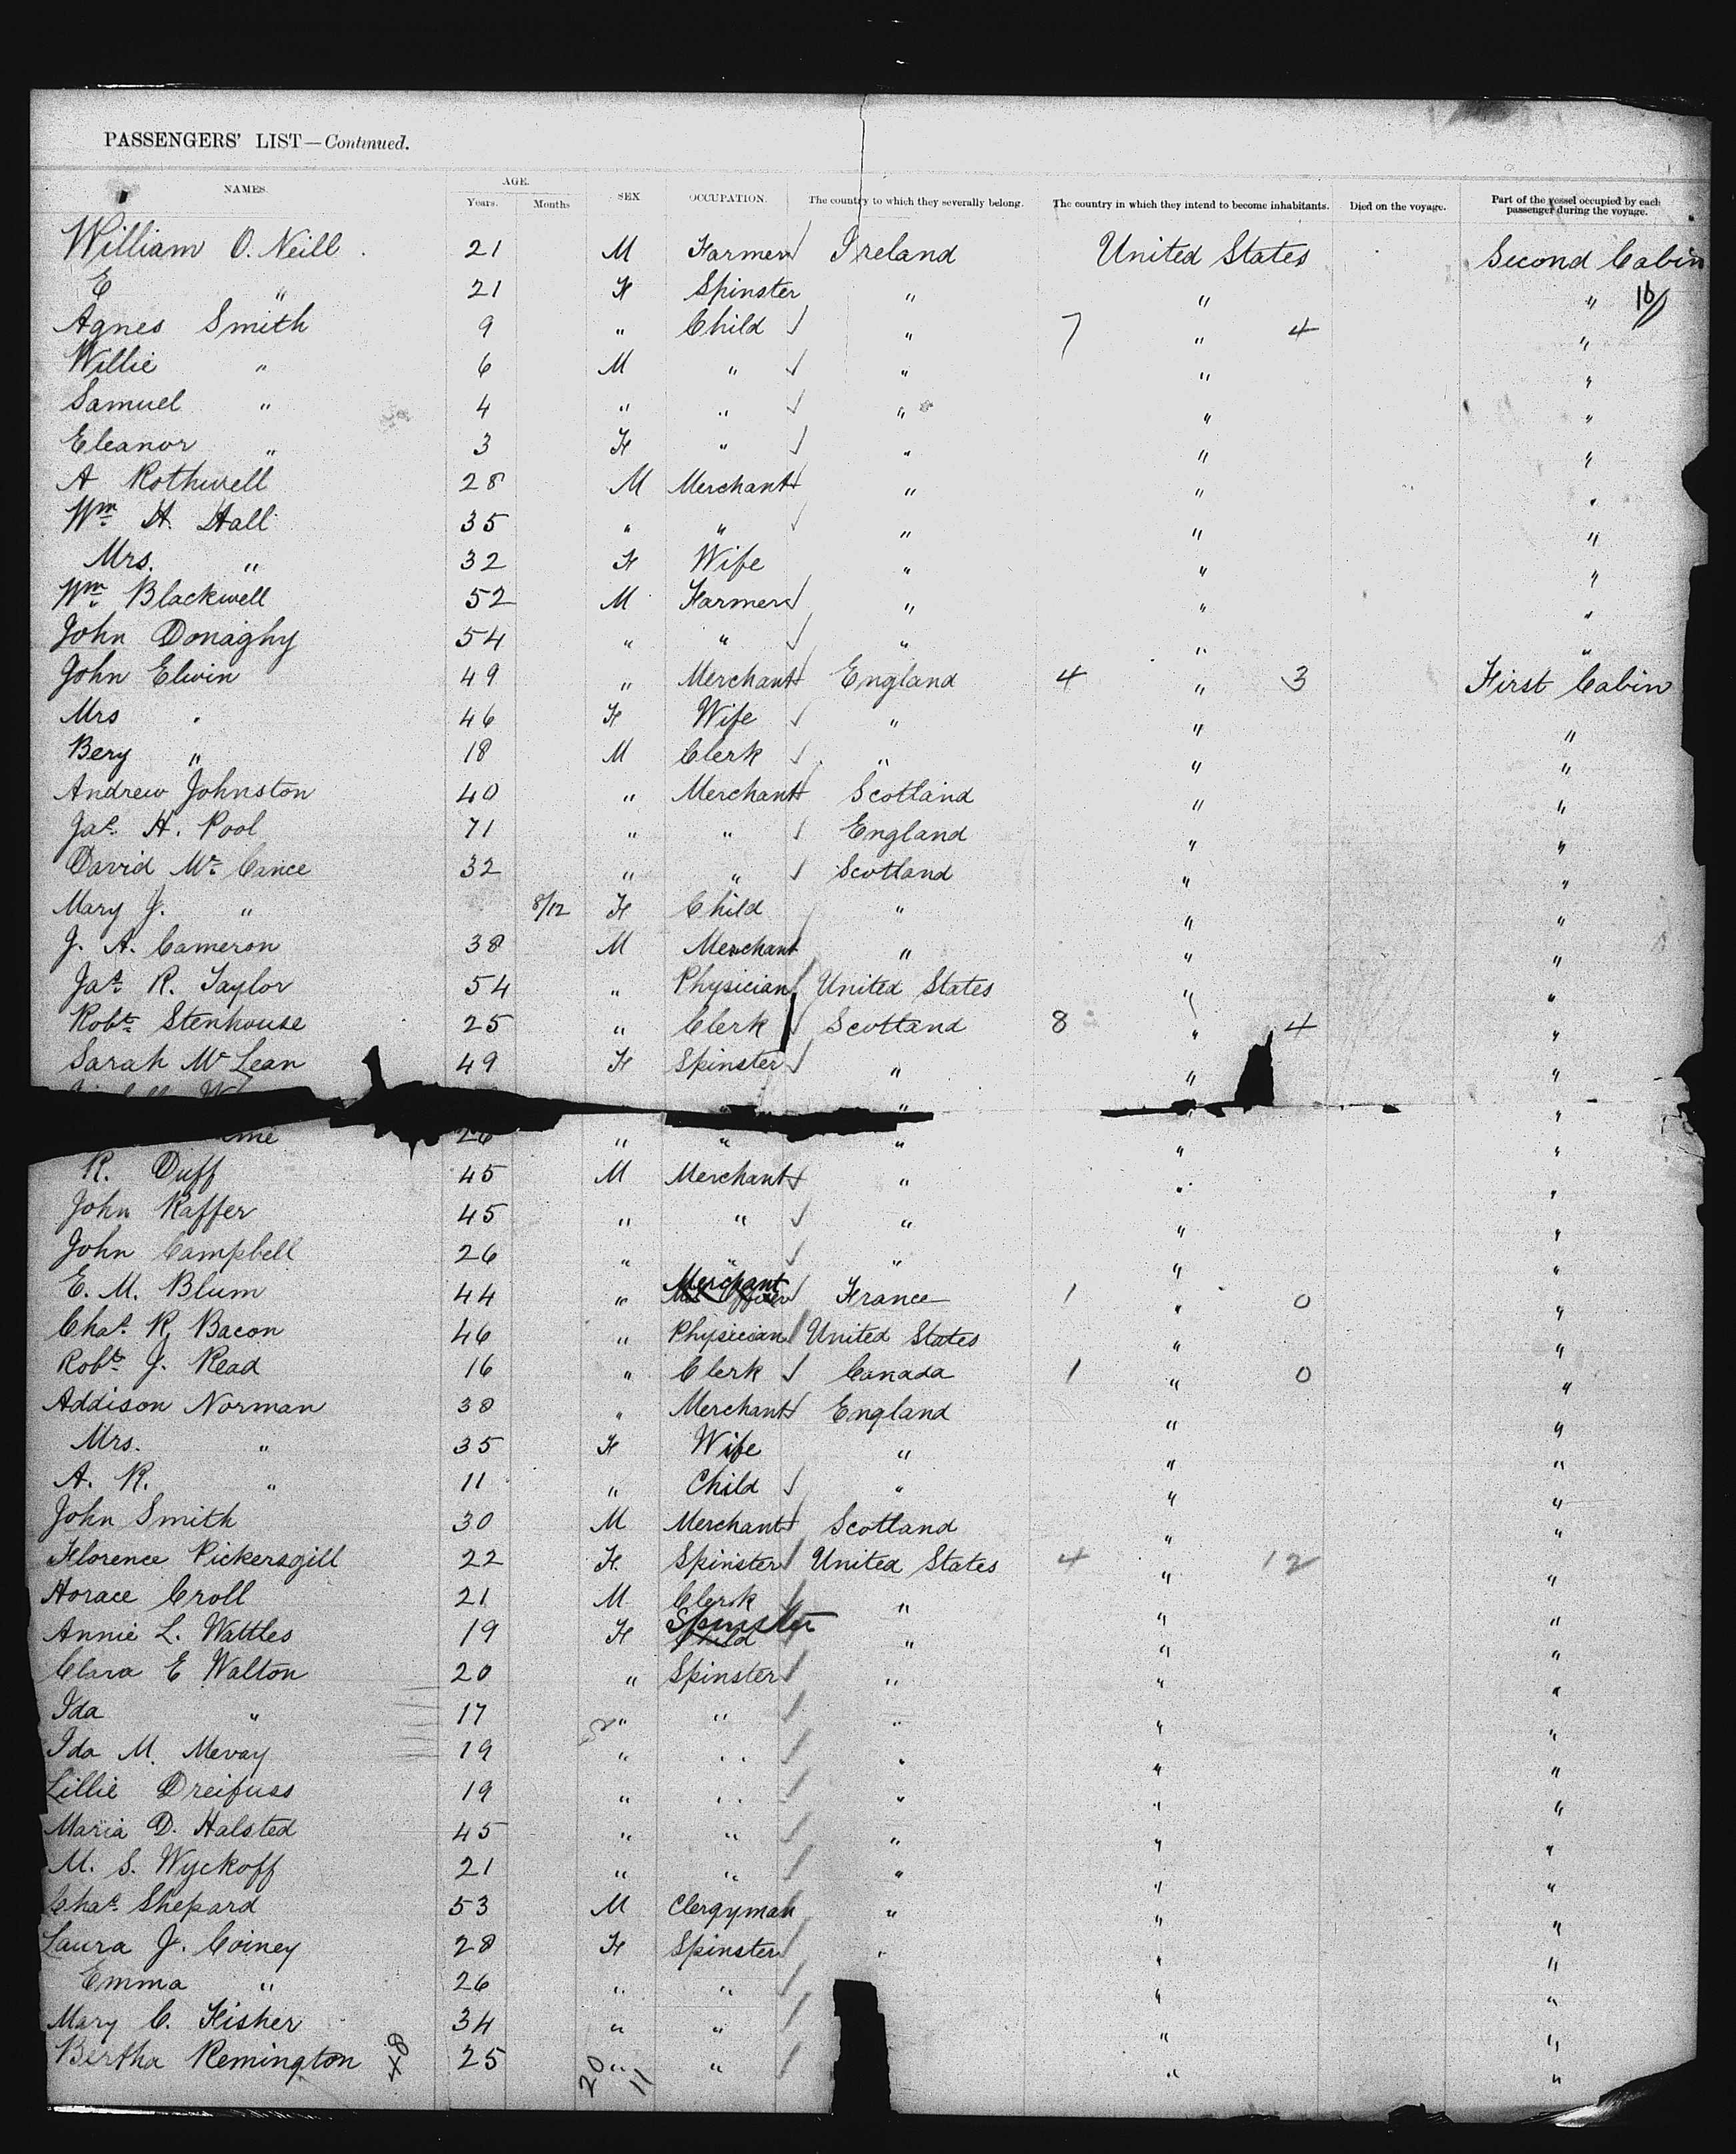 PASSENGERS' LIST—Continued.
NAMES. AGE. SEX OCCUPATION. The country to which they severally belong. The country in which they intend to become inhabitants. Died on the voyage. Part of the vessel occupied by each passenger during the voyage.
Years. Months
William O. Neill 21 M Farmer Ireland United States Second Cabin
E " 21 F Spinster " " " 16
Agnes Smith 9 " Child " 7 " 4 "
Willie " 6 M " " " "
Samuel " 4 " " " " "
Eleanor " 3 F " " " "
A Rothwell 28 M Merchant " " "
Wm H. Hall 35 " " " " "
Mrs. " 32 F Wife " " "
Wm Blackwell 52 M Farmer " " "
John Donaghy 54 " " " " "
John Elwin 49 " Merchant England 4 " 3 First Cabin
Mrs " 46 F Wife " " "
Bery " 18 M Clerk " " "
Andrew Johnston 40 " Merchant Scotland " "
Jas. H. Pool 71 " " England " "
David Mc Cance 32 " " Scotland " "
Mary J. " 8/12 F Child " " "
J. A. Cameron 38 M Merchant " " "
Jas. R. Taylor 54 " Physician United States " "
Robt. Stenhouse 25 " Clerk Scotland 8 " 4 "
Sarah Mc Lean 49 F Spinster " " "
" " " "
26 " " " " "
R. Duff 45 M Merchant " " "
John Raffer 45 " " " " "
John Campbell 26 " " " " "
E. M. Blum 44 " Merchant France 1 " 0 "
Chas. R. Bacon 46 " Physician United States " "
Robt. J. Read 16 " Clerk Canada 1 " 0 "
Addison Norman 38 " Merchant England " "
Mrs. " 35 F Wife " " "
A. R. " 11 " Child " " "
John Smith 30 M Merchant Scotland " "
Florence Pickersgill 22 F. Spinster United States 4 " 12 "
Horace Croll 21 M Clerk " " "
Annie L. Wattles 19 F Spinster Child " " "
Clara E Walton 20 " Spinster " " "
Ida " 17 " " " " "
Ida M. Mevay 19 " " " " "
Lillie Dreifuss 19 " " " " "
Maria D. Halsted 45 " " " " "
M. S. Wyckoff 21 " " " " "
Chas. Shepard 53 M Clergyman " " "
Laura J. Coiney 28 F Spinster " " "
Emma " 26 " " " "
Mary C. Fisher 34 " " " "
Bertha Remington 48 25 " " " "
20 11